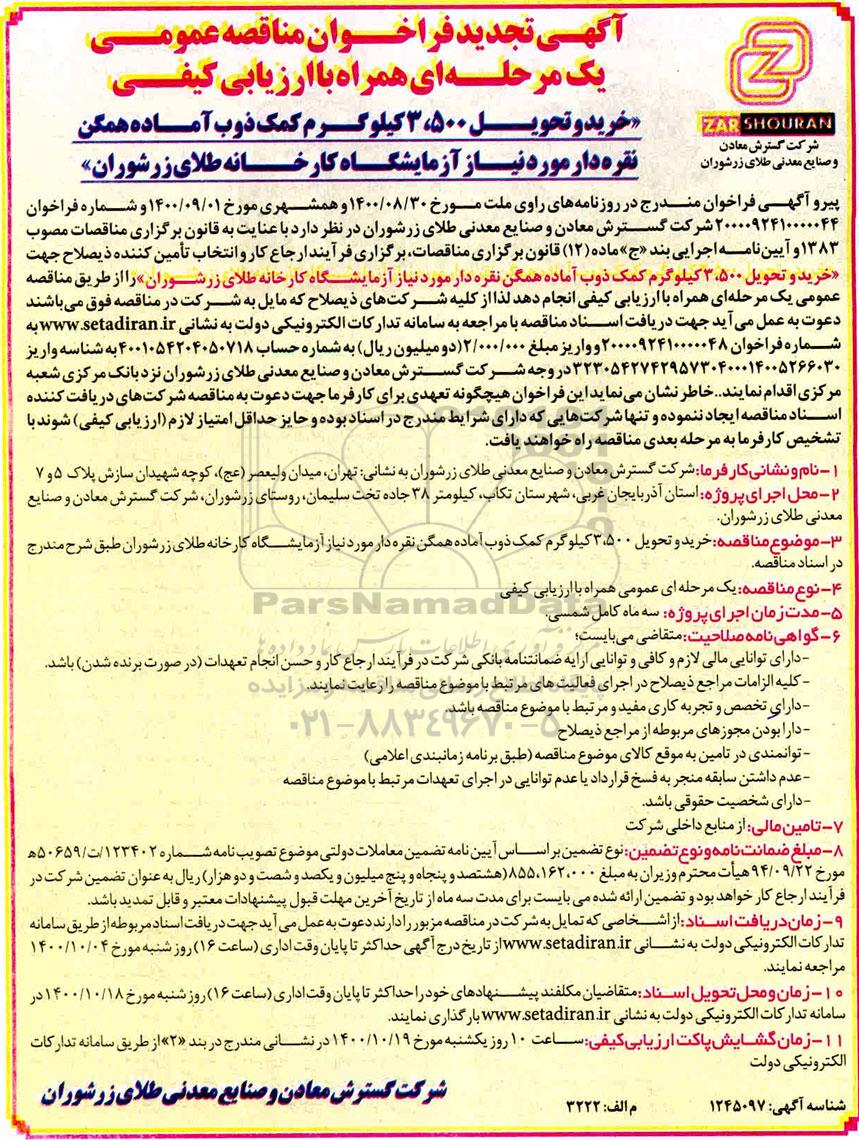 آگهی تجدید فراخوان مناقصه عمومی
یک مرحله‌ای همراه با ارزیابی کیفی
«خرید و تحویل ۳،۵۰۰ کیلوگرم کمک ذوب آماده همگن
نقره دار مورد نیاز آزمایشگاه کارخانه طلای زرشوران»
ZAR SHOURAN
شرکت گسترش معادن
و صنایع معدنی طلای زرشوران
پیرو آگهی فراخوان مندرج در روزنامه‌های راوی ملت مورخ ۱۴۰۰/۰۸/۳۰ و همشهری مورخ ۱۴۰۰/۰۹/۰۱ و شماره فراخوان
۲۰۰۰۰۹۲۴۱۰۰۰۰۰۴۴ شرکت گسترش معادن و صنایع معدنی طلای زرشوران در نظر دارد با عنایت به قانون برگزاری مناقصات مصوب
۱۳۸۳ و آیین‌نامه اجرایی بند «ج» ماده (۱۲) قانون برگزاری مناقصات، برگزاری فرآیند ارجاع کار و انتخاب تأمین کننده ذیصلاح جهت
«خرید و تحویل ۳،۵۰۰ کیلوگرم کمک ذوب آماده همگن نقره دار مورد نیاز آزمایشگاه کارخانه طلای زرشوران» را از طریق مناقصه
عمومی یک مرحله‌ای همراه با ارزیابی کیفی انجام دهد لذا از کلیه شرکت‌های ذیصلاح که مایل به شرکت در مناقصه فوق می‌باشند
دعوت به عمل می آید جهت دریافت اسناد مناقصه با مراجعه به سامانه تدارکات الکترونیکی دولت به نشانی www.setadiran.ir به
شماره فراخوان ۲۰۰۰۰۹۲۴۱۰۰۰۰۰۴۸ و واریز مبلغ ۲/۰۰۰/۰۰۰ (دو میلیون ریال) به شماره حساب ۴۰۰۱۰۵۴۲۰۴۰۵۰۷۱۸ به شناسه واریز
۳۲۳۰۵۴۲۷۴۲۹۵۷۳۰۴۰۰۰۱۴۰۰۵۲۶۶۰۳۰ در وجه شرکت گسترش معادن و صنایع معدنی طلای زرشوران نزد بانک مرکزی شعبه
مرکزی اقدام نمایند..خاطر نشان می نماید این فراخوان هیچگونه تعهدی برای کارفرما جهت دعوت به مناقصه شرکت‌های دریافت کننده
اسناد مناقصه ایجاد ننموده و تنها شرکت‌هایی که دارای شرایط مندرج در اسناد بوده و حایز حداقل امتیاز لازم (ارزیابی کیفی) شوند با
تشخیص کارفرما به مرحله بعدی مناقصه راه خواهند یافت.
۱- نام و نشانی کارفرما: شرکت گسترش معادن و صنایع معدنی طلای زرشوران به نشانی: تهران، میدان ولیعصر (عج)، کوچه شهیدان سازش پلاک ۵ و ۷
۲- محل اجرای پروژه: استان آذربایجان غربی، شهرستان تکاب، کیلومتر ۳۸ جاده تخت سلیمان، روستای زرشوران، شرکت گسترش معادن و صنایع
معدنی طلای زرشوران.
۳- موضوع مناقصه: خرید و تحویل ۳،۵۰۰ کیلوگرم کمک ذوب آماده همگن نقره دار مورد نیاز آزمایشگاه کارخانه طلای زرشوران طبق شرح مندرج
در اسناد مناقصه.
۴- نوع مناقصه: یک مرحله ای عمومی همراه با ارزیابی کیفی
۵- مدت زمان اجرای پروژه: سه ماه کامل شمسی.
۶- گواهی نامه صلاحیت: متقاضی می‌بایست؛
- دارای توانایی مالی لازم و کافی و توانایی ارایه ضمانتنامه بانکی شرکت در فرآیند ارجاع کار و حسن انجام تعهدات (در صورت برنده شدن) باشد.
- کلیه الزامات مراجع ذیصلاح در اجرای فعالیت‌های مرتبط با موضوع مناقصه را رعایت نمایند.
- دارای تخصص و تجربه کاری مفید و مرتبط با موضوع مناقصه باشد.
- دارا بودن مجوزهای مربوطه از مراجع ذیصلاح
- توانمندی در تامین به موقع کالای موضوع مناقصه (طبق برنامه زمانبندی اعلامی)
- عدم داشتن سابقه منجر به فسخ قرارداد یا عدم توانایی در اجرای تعهدات مرتبط با موضوع مناقصه
- دارای شخصیت حقوقی باشد.
ParsNamadData
۰۲۱-۸۸۳۴۹۶۷۰-۵
۷- تامین مالی: از منابع داخلی شرکت
۸- مبلغ ضمانت نامه و نوع تضمین: نوع تضمین بر اساس آیین نامه تضمین معاملات دولتی موضوع تصویب نامه شماره ۱۲۳۴۰۲/ت/۵۰۶۵۹ه
مورخ ۹۴/۰۹/۲۲ هیأت محترم وزیران به مبلغ ۸۵۵،۱۶۲،۰۰۰ (هشتصد و پنجاه و پنج میلیون و یکصد و شصت و دو هزار) ریال به عنوان تضمین شرکت در
فرآیند ارجاع کار خواهد بود و تضمین ارائه شده می بایست برای مدت سه ماه از تاریخ آخرین مهلت قبول پیشنهادات معتبر و قابل تمدید باشد.
۹- زمان دریافت اسناد: از اشخاصی که تمایل به شرکت در مناقصه مزبور را دارند دعوت به عمل می آید جهت دریافت اسناد مربوطه از طریق سامانه
تدارکات الکترونیکی دولت به نشانی www.setadiran.ir از تاریخ درج آگهی حداکثر تا پایان وقت اداری (ساعت ۱۶) روز شنبه مورخ ۱۴۰۰/۱۰/۰۴
مراجعه نمایند.
۱۰- زمان و محل تحویل اسناد: متقاضیان مکلفند پیشنهادهای خود را حداکثر تا پایان وقت اداری (ساعت ۱۶) روز شنبه مورخ ۱۴۰۰/۱۰/۱۸ در
سامانه تدارکات الکترونیکی دولت به نشانی www.setadiran.ir بارگذاری نمایند.
۱۱- زمان گشایش پاکت ارزیابی کیفی: ساعت ۱۰ روز یکشنبه مورخ ۱۴۰۰/۱۰/۱۹ در نشانی مندرج در بند «۲» از طریق سامانه تدارکات
الکترونیکی دولت
شرکت گسترش معادن و صنایع معدنی طلای زرشوران
شناسه آگهی: ۱۲۴۵۰۹۷ م الف: ۳۲۲۲